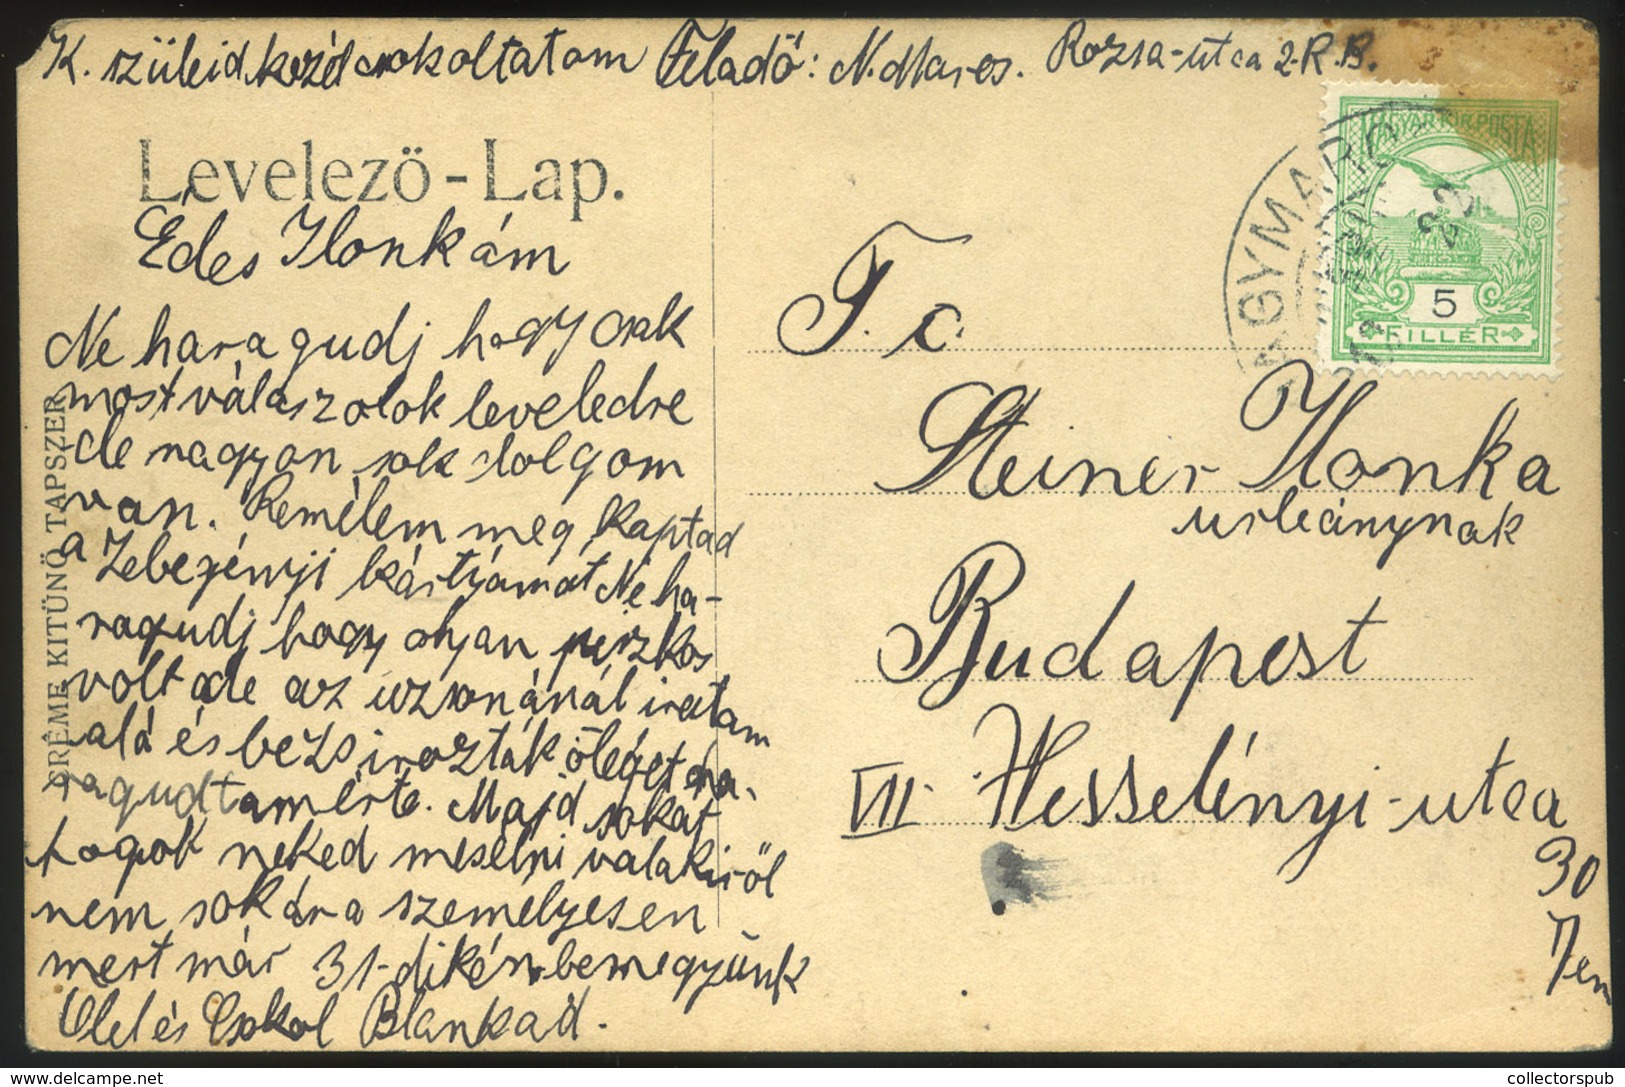 K. szüleid kezét csokoltatom Feladó: N. Maros. Rozsa-utca 2. R. B.
Levelező-Lap.
Édes Ilonkám
Ne haragudj hogy csak
most válaszolok leveledre
de nagyon sok dolgom
van. Remélem meg kaptad
a Zebegényji kártyámat Ne ha-
ragudj hogy olyan piszkos
volt de az uzsonánál irattam
alá és bezsirozták öléget ha-
ragudtam érte. Majd sokat
fogok neked mesélni valakiről
nem sokára személyesen
mert már 31-dikén bemegyünk
Ölel és Csókol Blankád.
CRÈME KITÜNŐ TAPSZER
MAGYAR KIR. POSTA
5
FILLÉR
NAGYMAROS
T. c.
Steiner Ilonka
urleánynak
Budapest
VII. Hesselényi-utca
30
collectorspub